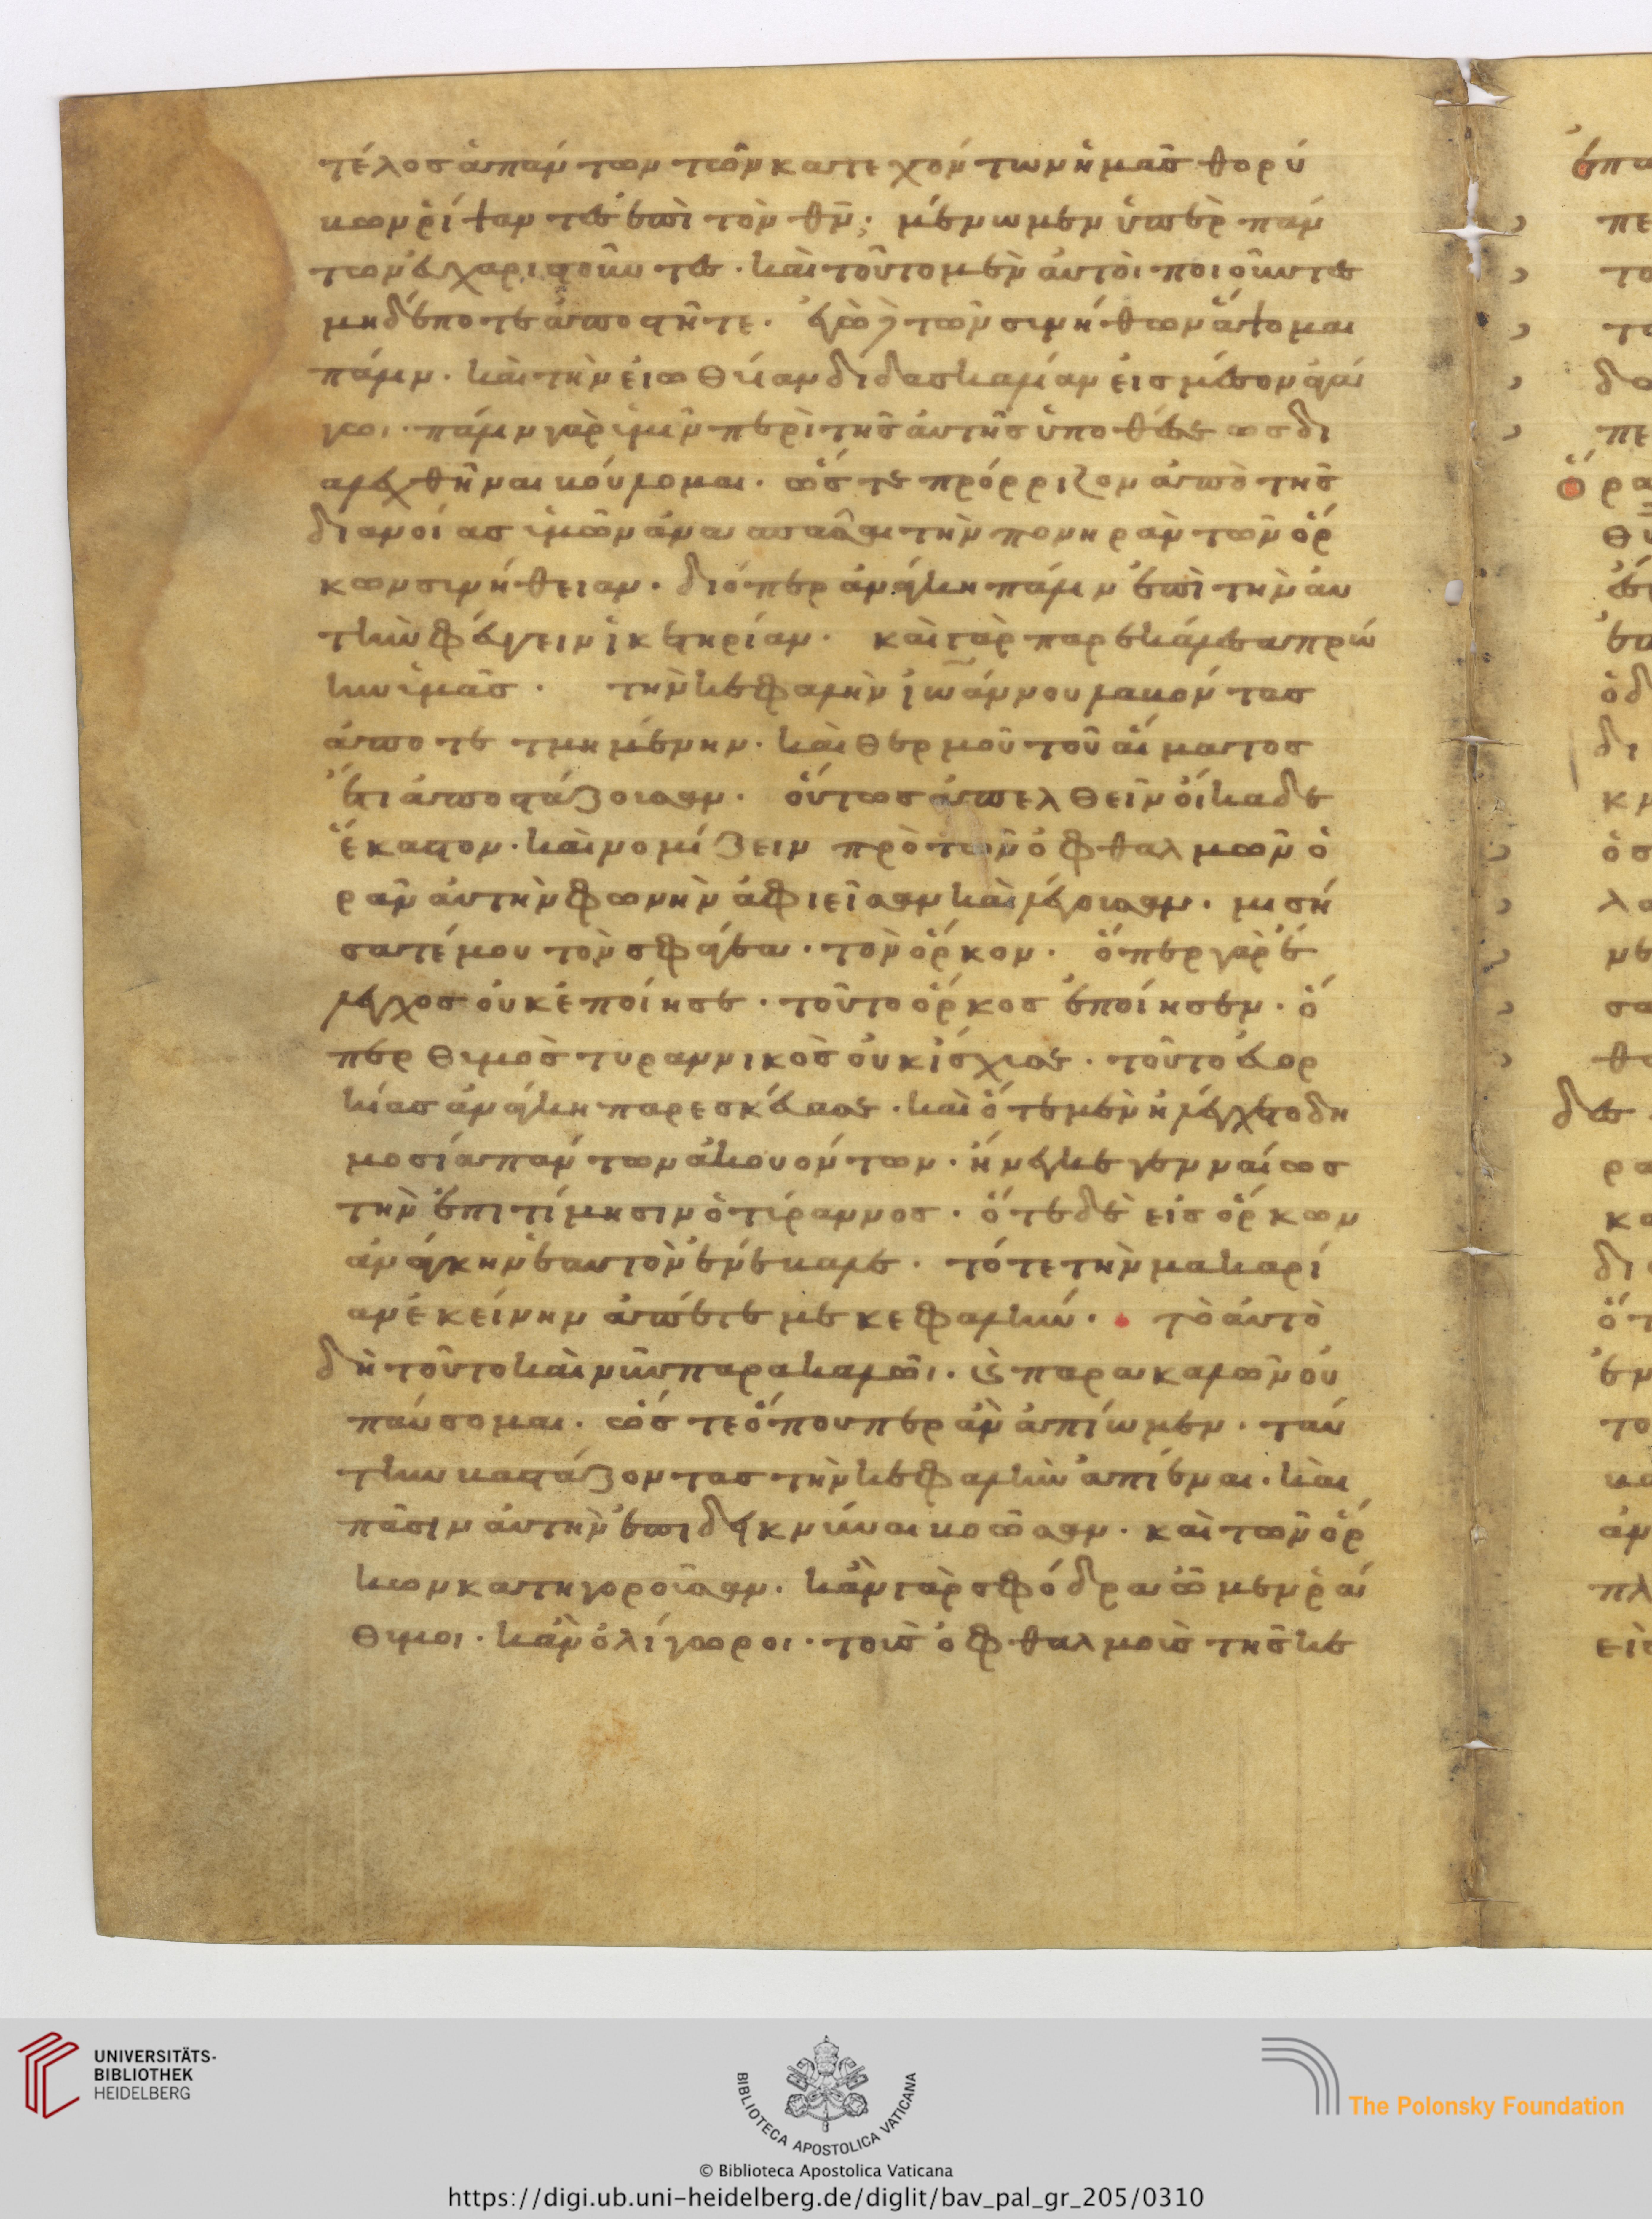 τέλος ἁπάντων τῶν κατεχόντων ἡμᾶς θορύ
βων ῥίψαντες ἐπὶ τὸν θν̄; μένωμεν ὑπὲρ πάν
των εὐχαριστοῦντες · καὶ τοῦτο μὲν αὐτοὶ ποιοῦντες
μηδέποτε ἀποστῆτε · ἐγὼ δὲ τῶν συνήθων ἅψομαι
πάλιν · καὶ τὴν εἰωθυῖαν διδασκαλίαν εἰς μέσον ἀγά
γω · πάλιν γὰρ ὑμῖν περὶ τῆς αὐτῆς ὑποθέσεως δι
αλεχθῆναι βούλομαι · ὥστε πρόρριζον ἀπὸ τῆς
διανοίας ὑμῶν ἀνασπάσαι τὴν πονηρὰν τῶν ὅρ
κων συνήθειαν · διόπερ ἀνάγκη πάλιν ἐπὶ τὴν αὐ
τὴν φεύγειν ἱκετηρίαν · καὶ γὰρ παρεκάλεσα πρώ
ην ὑμᾶς · τὴν κεφαλὴν ἰωάννου λαβόντας
ἀποτετμημένην · καὶ θερμοῦ τοῦ αἵματος
ἔτι ἀποστάζοντος · οὕτως ἀπελθεῖν οἴκαδε
ἕκαστον · καὶ νομίζειν πρὸ τῶν ὀφθαλμῶν ὁ
ρᾶν αὐτὴν φωνὴν ἀφιεῖσαν καὶ λέγουσαν · μισή
σατέ μου τὸν σφαγέα · τὸν ὅρκον · ὅπερ γὰρ ἔ
λεγχος οὐκ ἐποίησε · τοῦτο ὅρκος ἐποίησεν · ὅ
περ θυμὸς τυραννικὸς οὐκ ἴσχυσε · τοῦτο εὐορ
κίας ἀνάγκη παρεσκεύασε · καὶ ὅτε μὲν ἠλέγχετο δη
μοσίᾳ πάντων ἀκουόντων · ἤνεγκε γενναίως
τὴν ἐπιτίμησιν ὁ τύραννος · ὅτε δὲ εἰς ὅρκων
ἀνάγκην ἑαυτὸν ἐνέβαλε · τότε τὴν μακαρί
αν ἐκείνην ἀπέτεμε κεφαλήν · τὸ αὐτὸ
δὴ τοῦτο καὶ νῦν παρακαλῶ · καὶ παρακαλῶν οὐ
παύσομαι · ὥστε ὅπουπερ ἂν ἀπίωμεν · ταύ
την βαστάζοντας τὴν κεφαλὴν ἀπιέναι · καὶ
πᾶσιν αὐτὴν ἐπιδεικνύναι βοῶσαν · καὶ τῶν ὅρ
κων κατηγοροῦσαν · κἂν γὰρ σφόδρα ὦμεν ῥᾴ
θυμοι · κἂν ὀλίγωροι · τοὺς ὀφθαλμοὺς τῆς κε
UNIVERSITÄTS-
BIBLIOTHEK
HEIDELBERG
BIBLIOTECA APOSTOLICA VATICANA
The Polonsky Foundation
© Biblioteca Apostolica Vaticana
https://digi.ub.uni-heidelberg.de/diglit/bav_pal_gr_205/0310